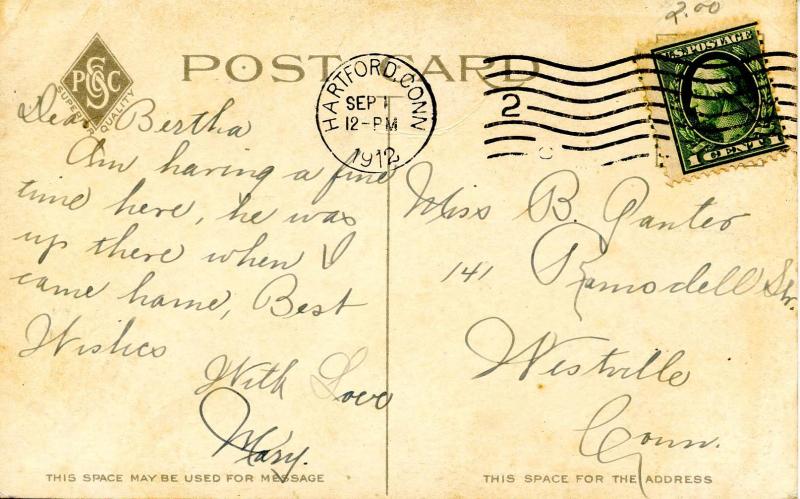 2.00
PCSC
SUPERIOR QUALITY
POST CARD
HARTFORD, CONN
SEP 1
12-PM
1912
2
U.S. POSTAGE
1 CENT 1
Dear Bertha
Am having a fine
time here, he was
up there when I
came home, Best
Wishes
With Love
Mary.
Miss B. Ganter
141 Ramsdell Str.
Westville
Conn.
THIS SPACE MAY BE USED FOR MESSAGE
THIS SPACE FOR THE ADDRESS